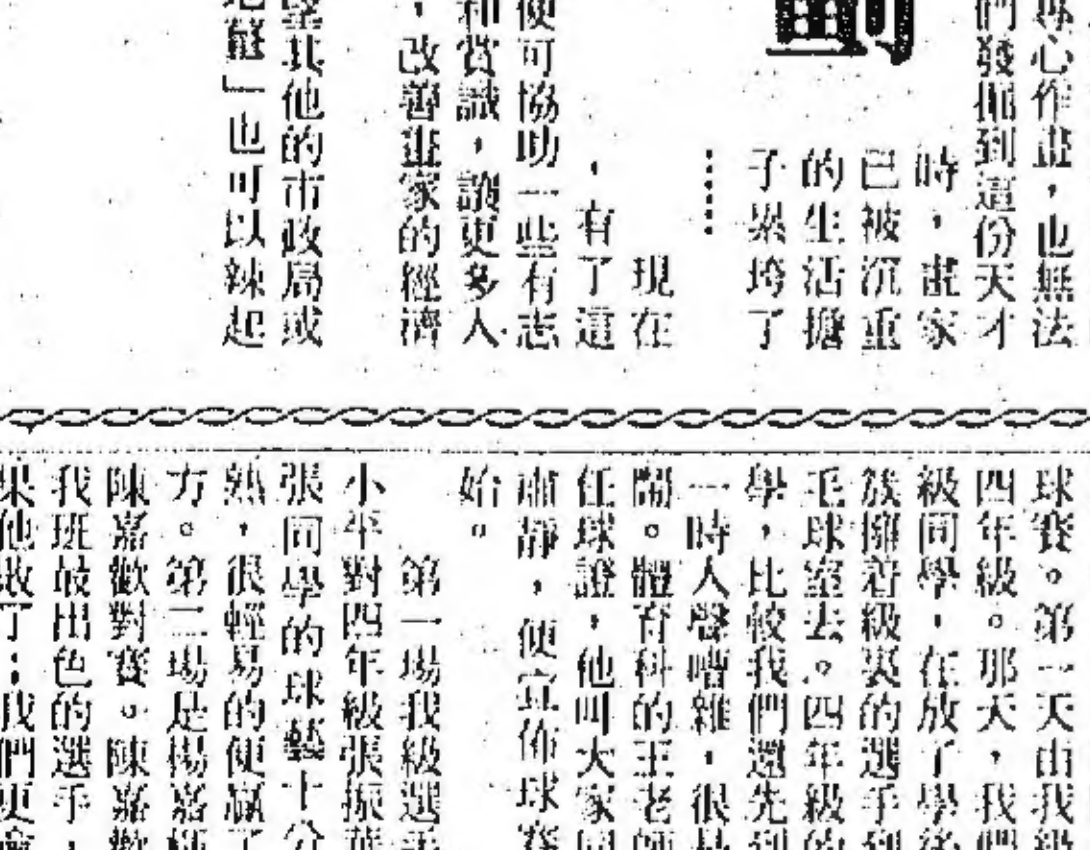 劃
專心作畫，也無法
們發掘到這份天才
時，畫家
已被沉重
的生活擔
子累垮了
……
現在
，有了這
便可協助一些有志
和賞識，讓更多人
，改善畫家的經濟
望其他的市政局或
」也可以辣起
球賽。第一天由我級
四年級。那天，我們
級同學，在放了學後
簇擁着級裏的選手到
毛球室去。四年級的
學，比較我們還先到
一時人聲嘈雜，很是
鬧。體育科的王老師
任球證，他叫大家同
肅靜，便宣佈球賽
始。
第一場我級選手
小平對四年級張振華
張同學的球藝十分
熟，很輕易的便贏了
方。第二場是楊嘉
陳嘉歡對賽。陳嘉歡
我班最出色的選手，
果他敗了；我們更會